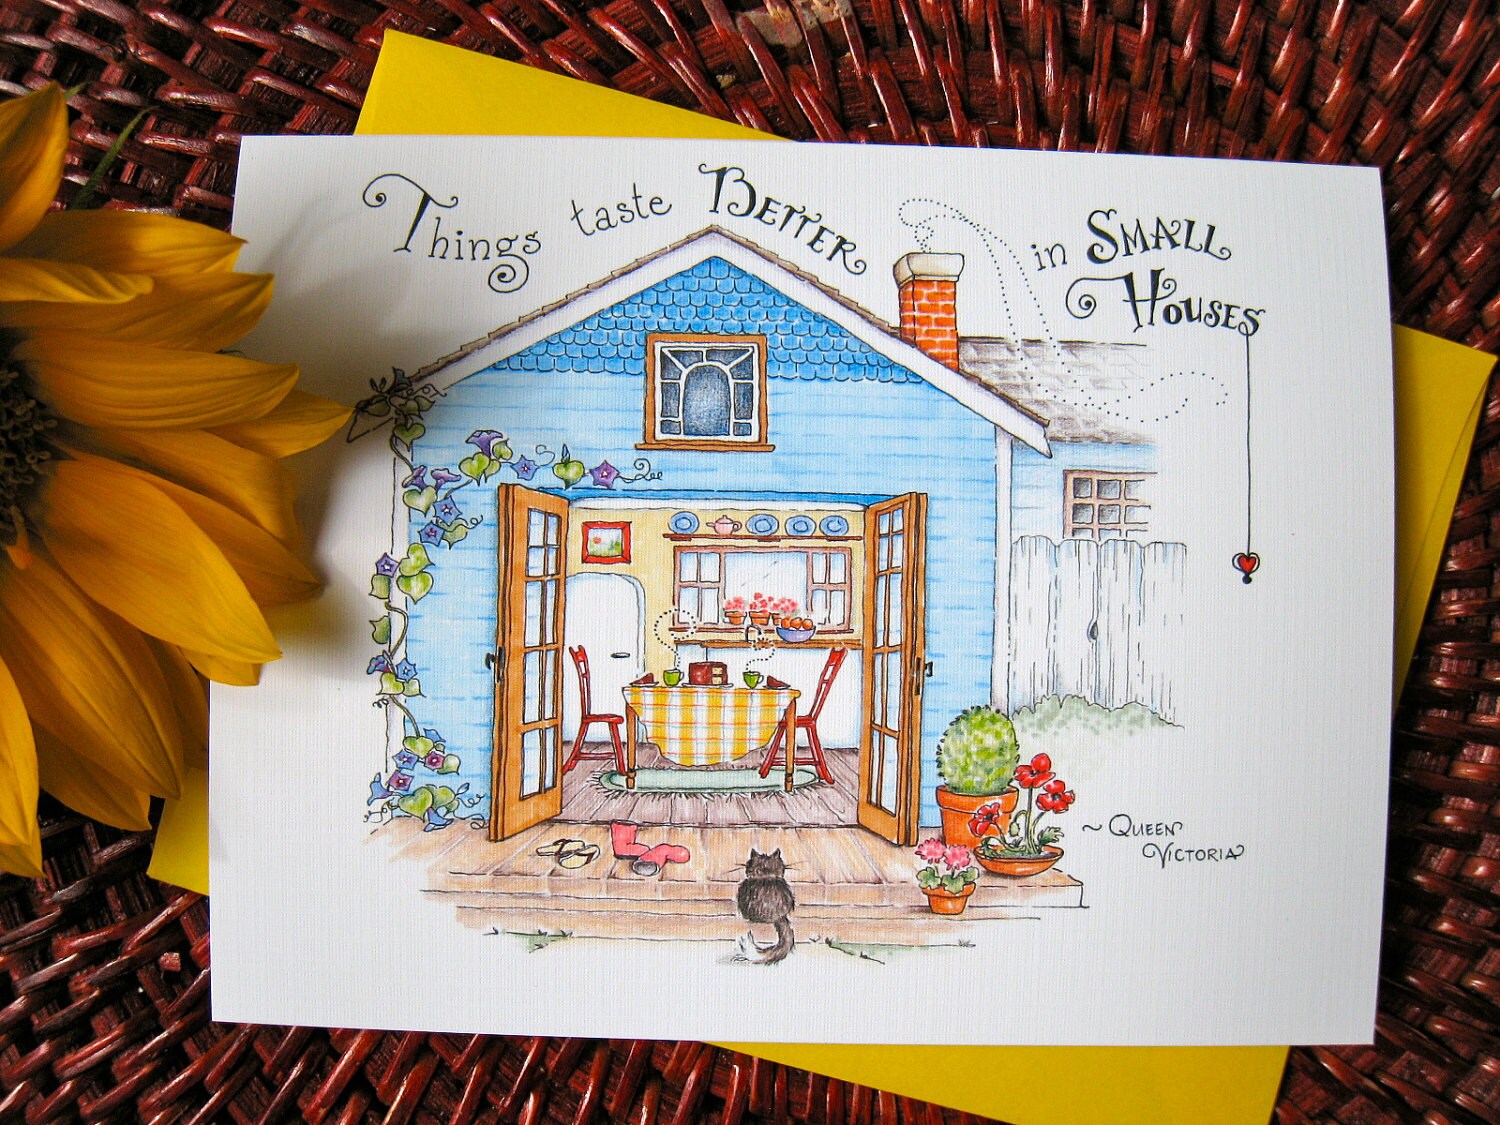 Things taste Better in Small
Houses
~ Queen
Victoria